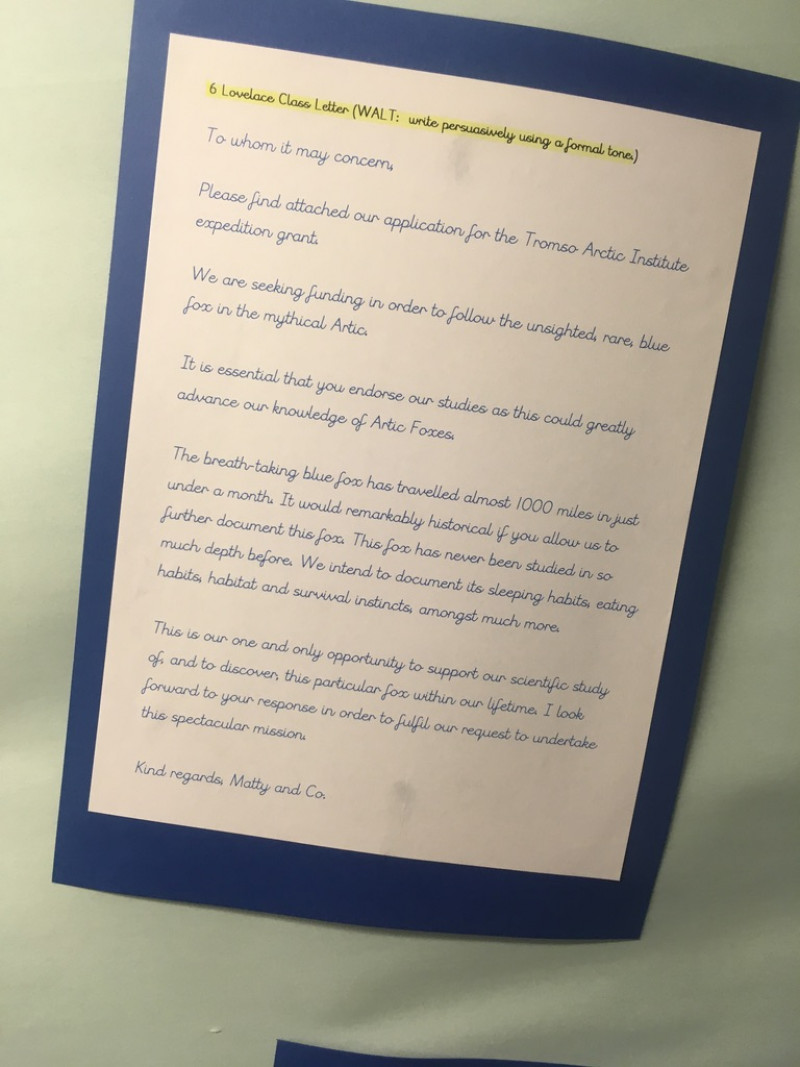 6 Lovelace Class Letter (WALT: write persuasively using a formal tone.)
To whom it may concern,
Please find attached our application for the Tromso Arctic Institute
expedition grant.
We are seeking funding in order to follow the unsighted, rare, blue
fox in the mythical Artic.
It is essential that you endorse our studies as this could greatly
advance our knowledge of Artic Foxes.
The breath-taking blue fox has travelled almost 1000 miles in just
under a month. It would remarkably historical if you allow us to
further document this fox. This fox has never been studied in so
much depth before. We intend to document its sleeping habits, eating
habits, habitat and survival instincts, amongst much more.
This is our one and only opportunity to support our scientific study
of, and to discover, this particular fox within our lifetime. I look
forward to your response in order to fulfil our request to undertake
this spectacular mission.
Kind regards, Matty and Co.